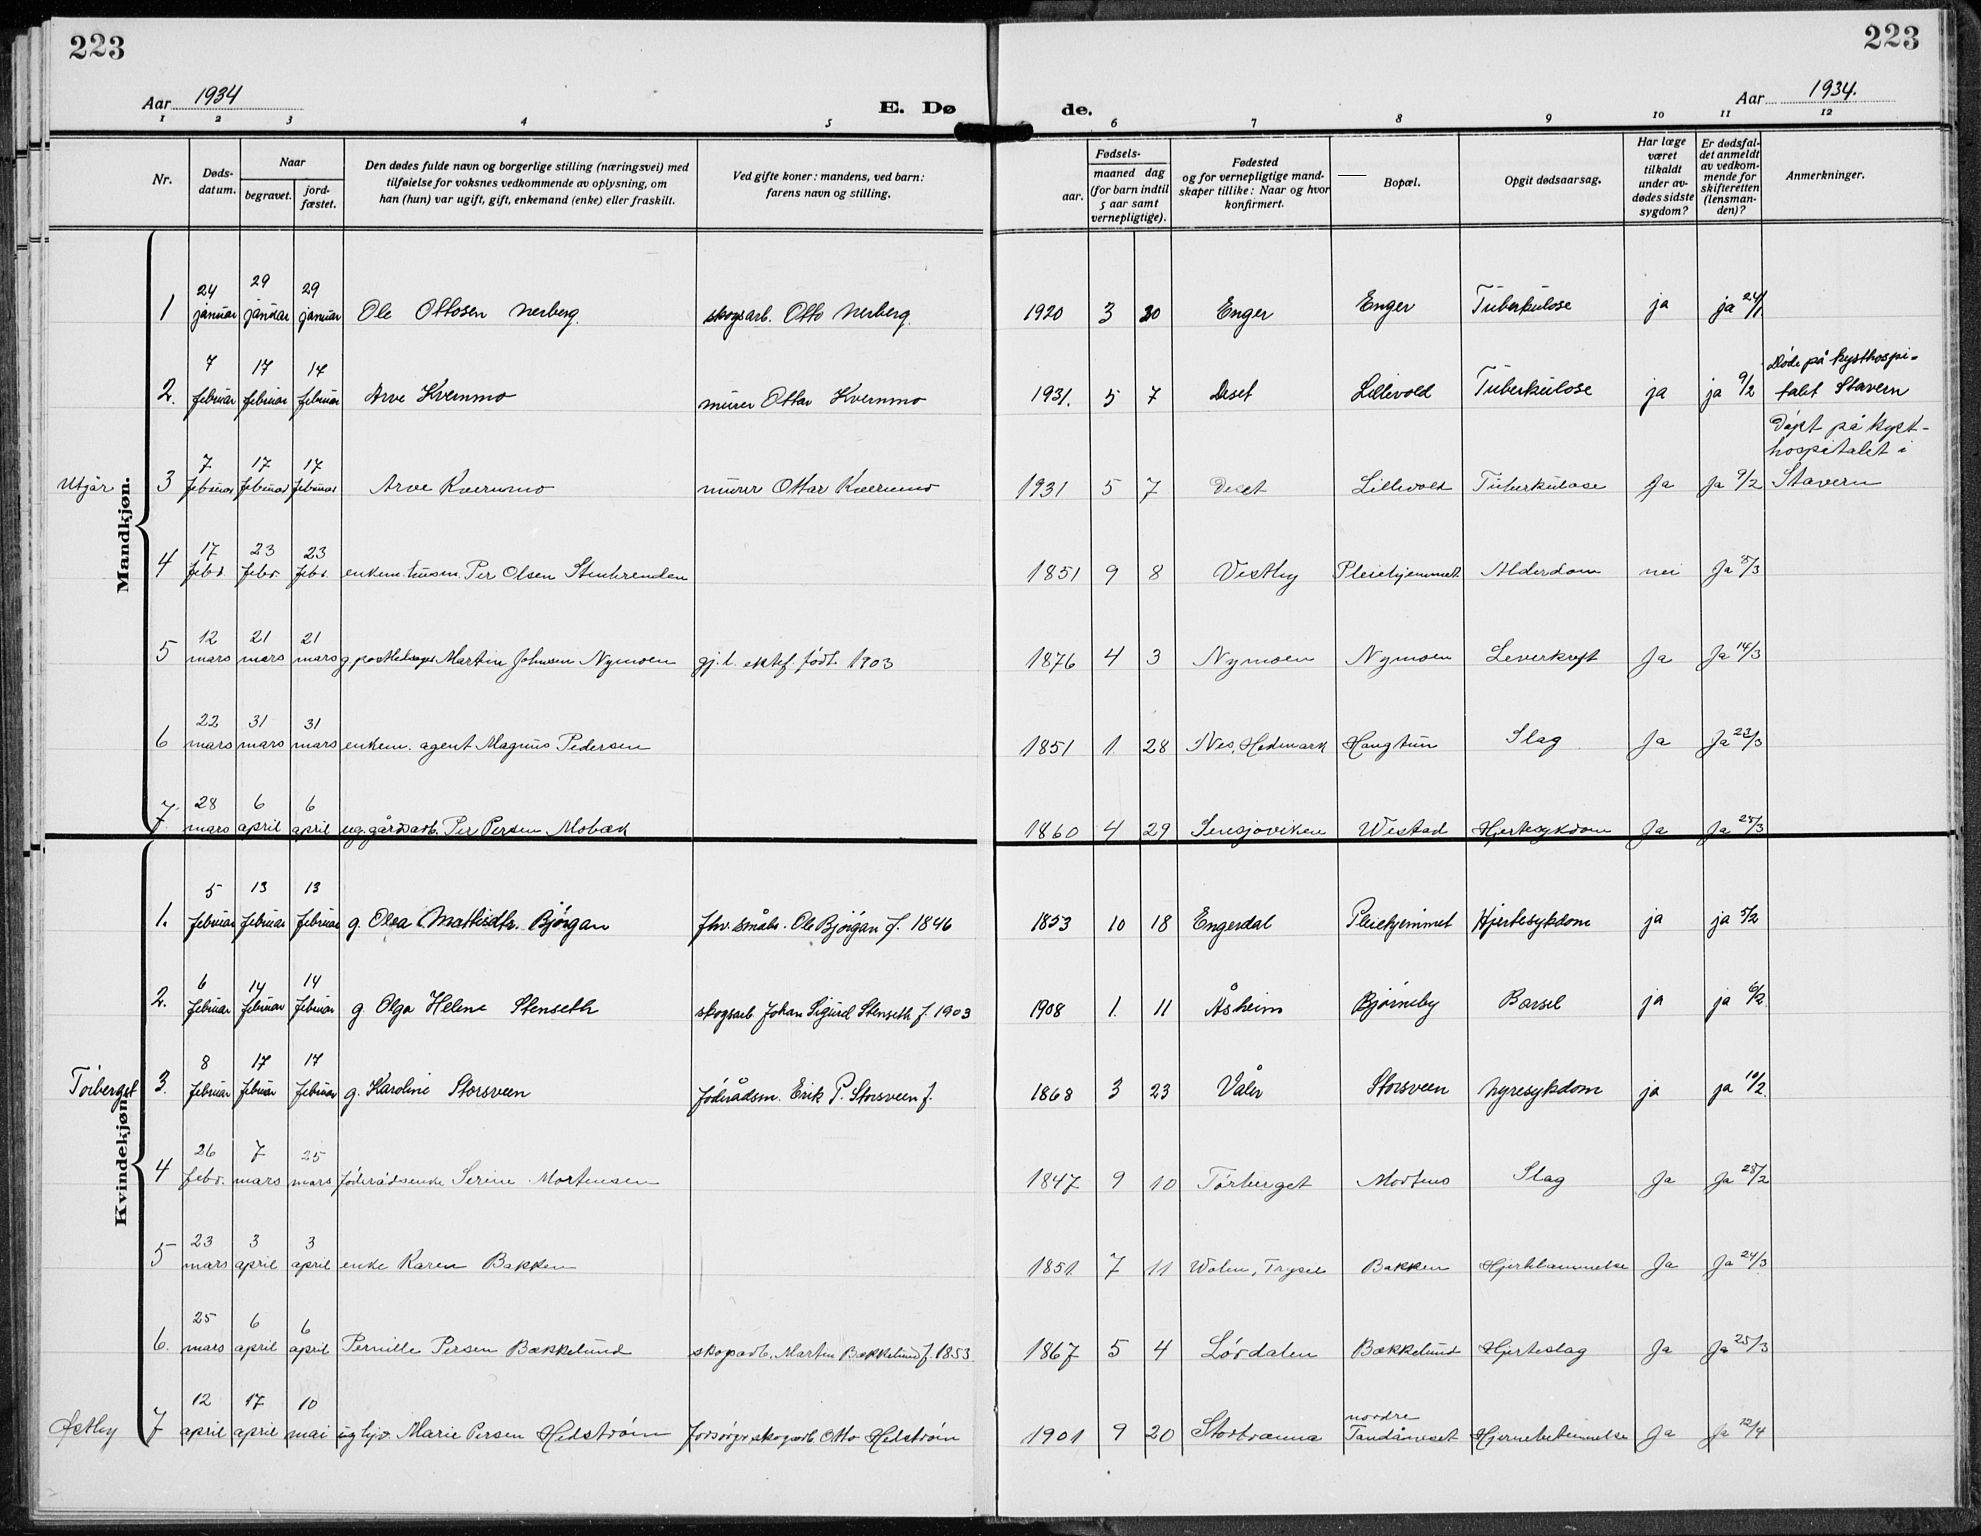 223
223
Aar 1934
E. Dø
de.
Aar 1934.
1 2 3 4 5 6 7 8 9 10 11 12
Nr.
Døds-
datum.
Naar
begravet.
jord-
fæstet.
Den dødes fulde navn og borgerlige stilling (næringsvei) med
tilføielse for voksnes vedkommende av oplysning, om
han (hun) var ugift, gift, enkemand (enke) eller fraskilt.
Ved gifte koner: mandens, ved barn:
farens navn og stilling.
Fødsels-
aar.
maaned dag
(for barn indtil
5 aar samt
vernepligtige).
Fødested
og for vernepligtige mand-
skaper tillike: Naar og hvor
konfirmert.
Bopæl.
Opgit dødsaarsag.
Har læge
været
tilkaldt
under av-
dødes sidste
sygdom?
Er dødsfal-
det anmeldt
av vedkom-
mende for
skifteretten
(lensman-
den)?
Anmerkninger.
Mandkjøn.
1 24 januar 29 januar 29 januar Ole Ottosen Nerberg. skogsarb. Otto Nerberg. 1920 3 20 Enger Enger Tuberkulose ja ja 24/1
2. 7 februar 17 februar 17 februar Arve Kvernmo murer Ottar Kvernmo 1931. 5 7 Deset Lillevold Tuberkulose ja ja 9/2 Døde på kysthospi-
talet Stavern
Utgår 3 7 februar 17 februar 17 februar Arve Kvernmo murer Ottar Kvernmo 1931 5 7 Deset Lillevold Tuberkulose Ja Ja 9/2 på kyst-
hospitalet i
Stavern
4 17 febr. 23 febr. 23 febr. enkem. Per Olsen 1851 9 8 Vestby Pleiehjemmet Alderdom nei Ja 5/3
5 12 mars 21 mars 21 mars g. Martin Johnsen Nymoen gj. l. ektef. født. 1903 1876 4 3 Nymoen Nymoen Leverkreft Ja Ja 14/3
6 22 mars 31 mars 31 mars enkem. agent Magnus Pedersen 1851 1 28 Nes, Hedmark Haugtun Slag Ja Ja 23/3
7. 28 mars 6 april 6 april ug. gårdsarb. Per Persen Mobæk 1860 4 29 Sensjøviken Westad Hjertesykdom Ja Ja 28/3
Kvindekjøn.
1. 5 februar 13 februar 13 februar g. Olea Bjørgan fhv. småbr. Ole Bjørgan f. 1846 1853 10 18 Engerdal Pleiehjemmet Hjertesykdom ja ja 5/2
2. 6 februar 14 februar 14 februar g. Olga Helene Stenseth skogsarb Johan Sigurd Stenseth f. 1903 1908 1. 11 Åsheim Bjørneby Barsel ja ja 6/2
Törberget 3. 8 februar 17 februar 17 februar g. Karoline Storsveen föderådsm. Erik P. Storsveen f. 1868 3 23 Våler Storsveen Nyresykdom ja ja 10/2.
4 26 febr. 7 mars 25 mars föderådsenke Serine Mortensen 1847 9 10 Törberget Mortens Slag Ja Ja 28/2
5 23 mars 3 april 3 april enke Karen Bakken 1851. 7 11 Wolen, Trysil Bakken Hjertelammelse Ja Ja 24/3
6. 25 mars 6 april 6 april Pernille Persen Bækkelund skogarb. Martin Bækkelund f. 1853. 1867 5 4 Lördalen Bækkelund Hjerteslag Ja Ja 25/3
Østby 7 12 april 17 april 10 mai ug hjv. Marie Persen Hedström forsörger skogarb. Otto Hedström 1901 9 20 Storbrænna nordre
Tandåneset Hjernebetennelse Ja Ja 12/4